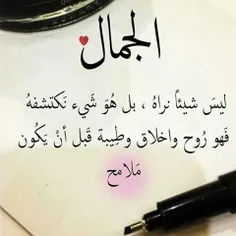 الجمال
ليسَ شيئاً نراهُ ، بل هُوَ شَيء نَكتشفهُ
فَهو رُوح واخلاق وطِيبة قَبل أنْ يَكُون
مَلامح